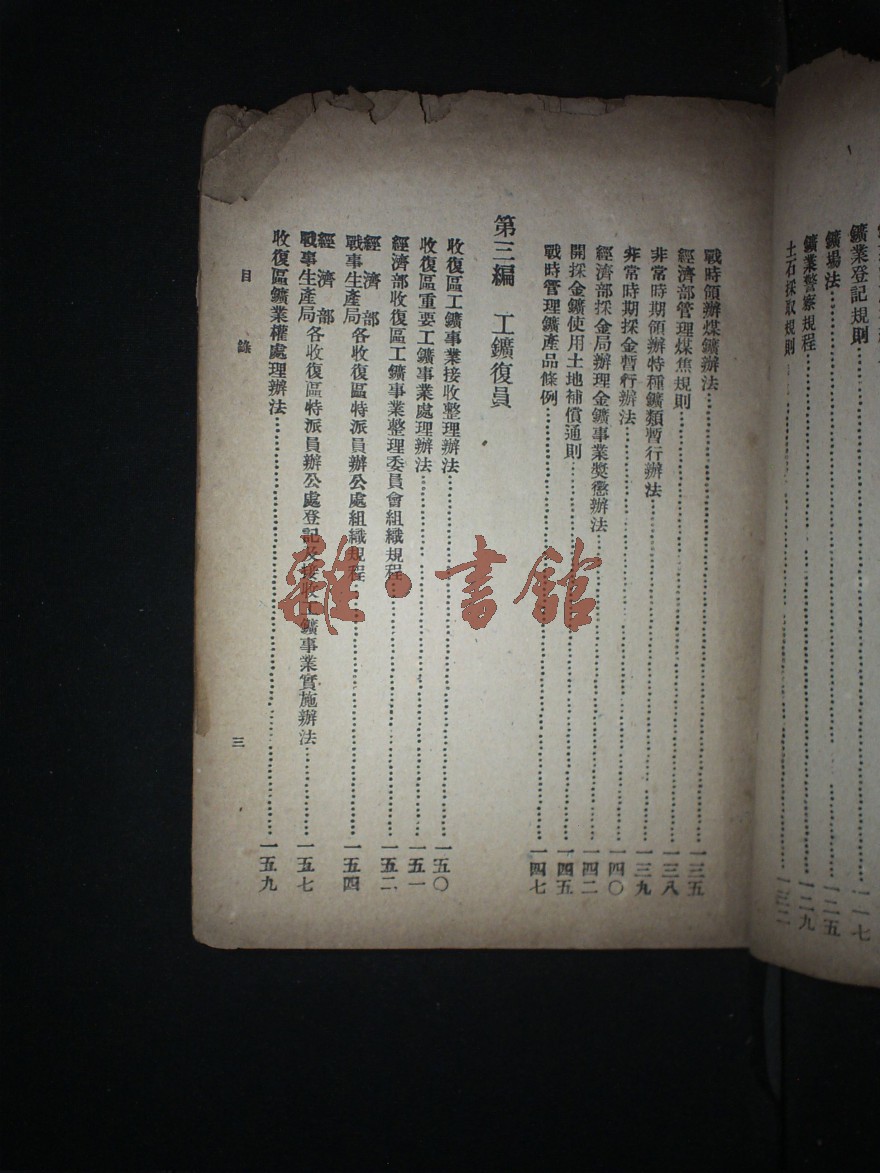 鑛業登記規則……一一七
鑛場法……一二五
鑛業警察規程……一二九
土石採取規則……一三二
戰時領辦煤鑛辦法……一三五
經濟部管理煤焦規則……一三八
非常時期領辦特種鑛類暫行辦法……一三九
非常時期採金暫行辦法……一四〇
經濟部採金局辦理金鑛事業獎懲辦法……一四二
開採金鑛使用土地補償通則……一四五
戰時管理鑛產品條例……一四七
第三編 工鑛復員
收復區工鑛事業接收整理辦法……一五〇
收復區重要工鑛事業處理辦法……一五一
經濟部收復區工鑛事業整理委員會組織規程……一五二
經濟部
戰事生產局各收復區特派員辦公處組織規程……一五四
經濟部
戰事生產局各收復區特派員辦公處登記及接收工鑛事業實施辦法……一五七
收復區鑛業權處理辦法……一五九
目錄
三
雜·書館